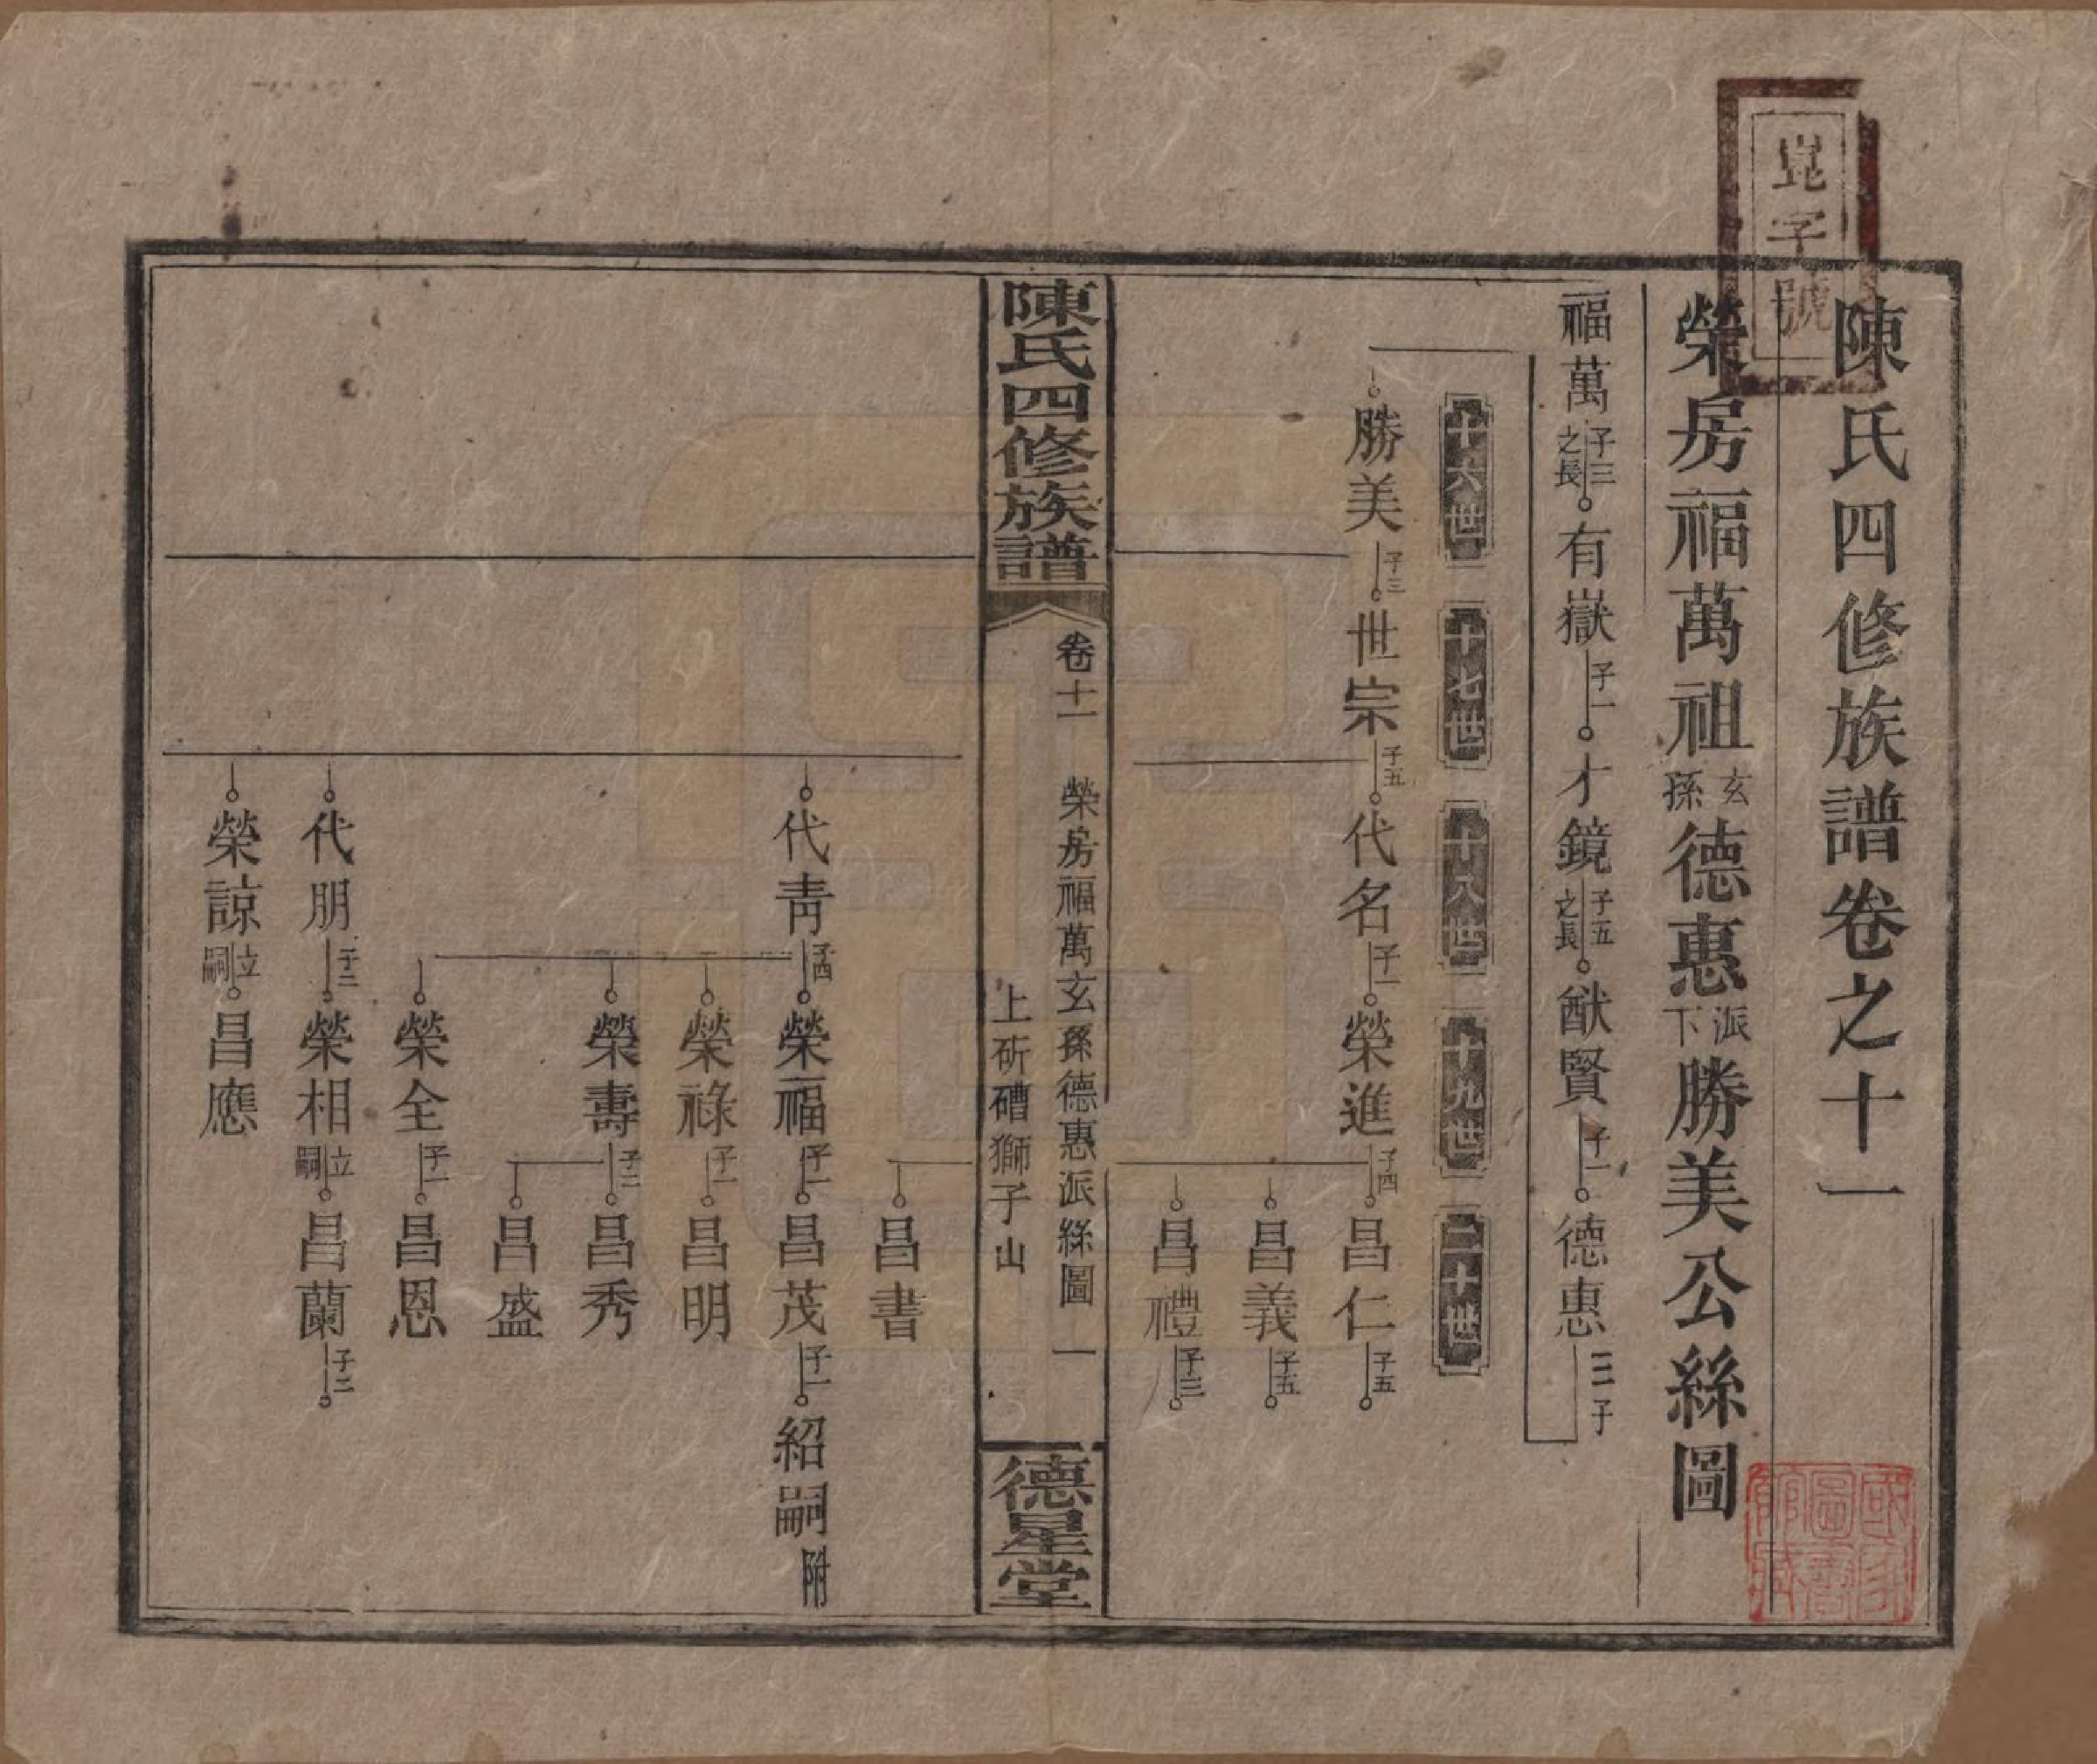 崑字號
陳氏四修族譜卷之十一
榮房福萬祖玄孫德惠派下勝美公絲圖
福萬 子三之長 有嶽 子一 才鏡 子五之長 猷賢 子一 德惠 三子
十六世 十七世 十八世 十九世 二十世
勝美 子三 世宗 子五 代名 子一 榮進 子四 昌仁 子五
昌義 子五
昌禮 子三
陳氏四修族譜 卷十一 榮房福萬玄孫德惠派絲圖 一
上斫磄獅子山
德星堂
昌書
代青 子四 榮福 子一 昌茂 子一 紹嗣 附
榮祿 子一 昌明
榮壽 子二 昌秀
昌盛
榮全 子一 昌恩
代朋 子二 榮相 立嗣 昌蘭 子二
榮諒 立嗣 昌應
國家圖書館藏